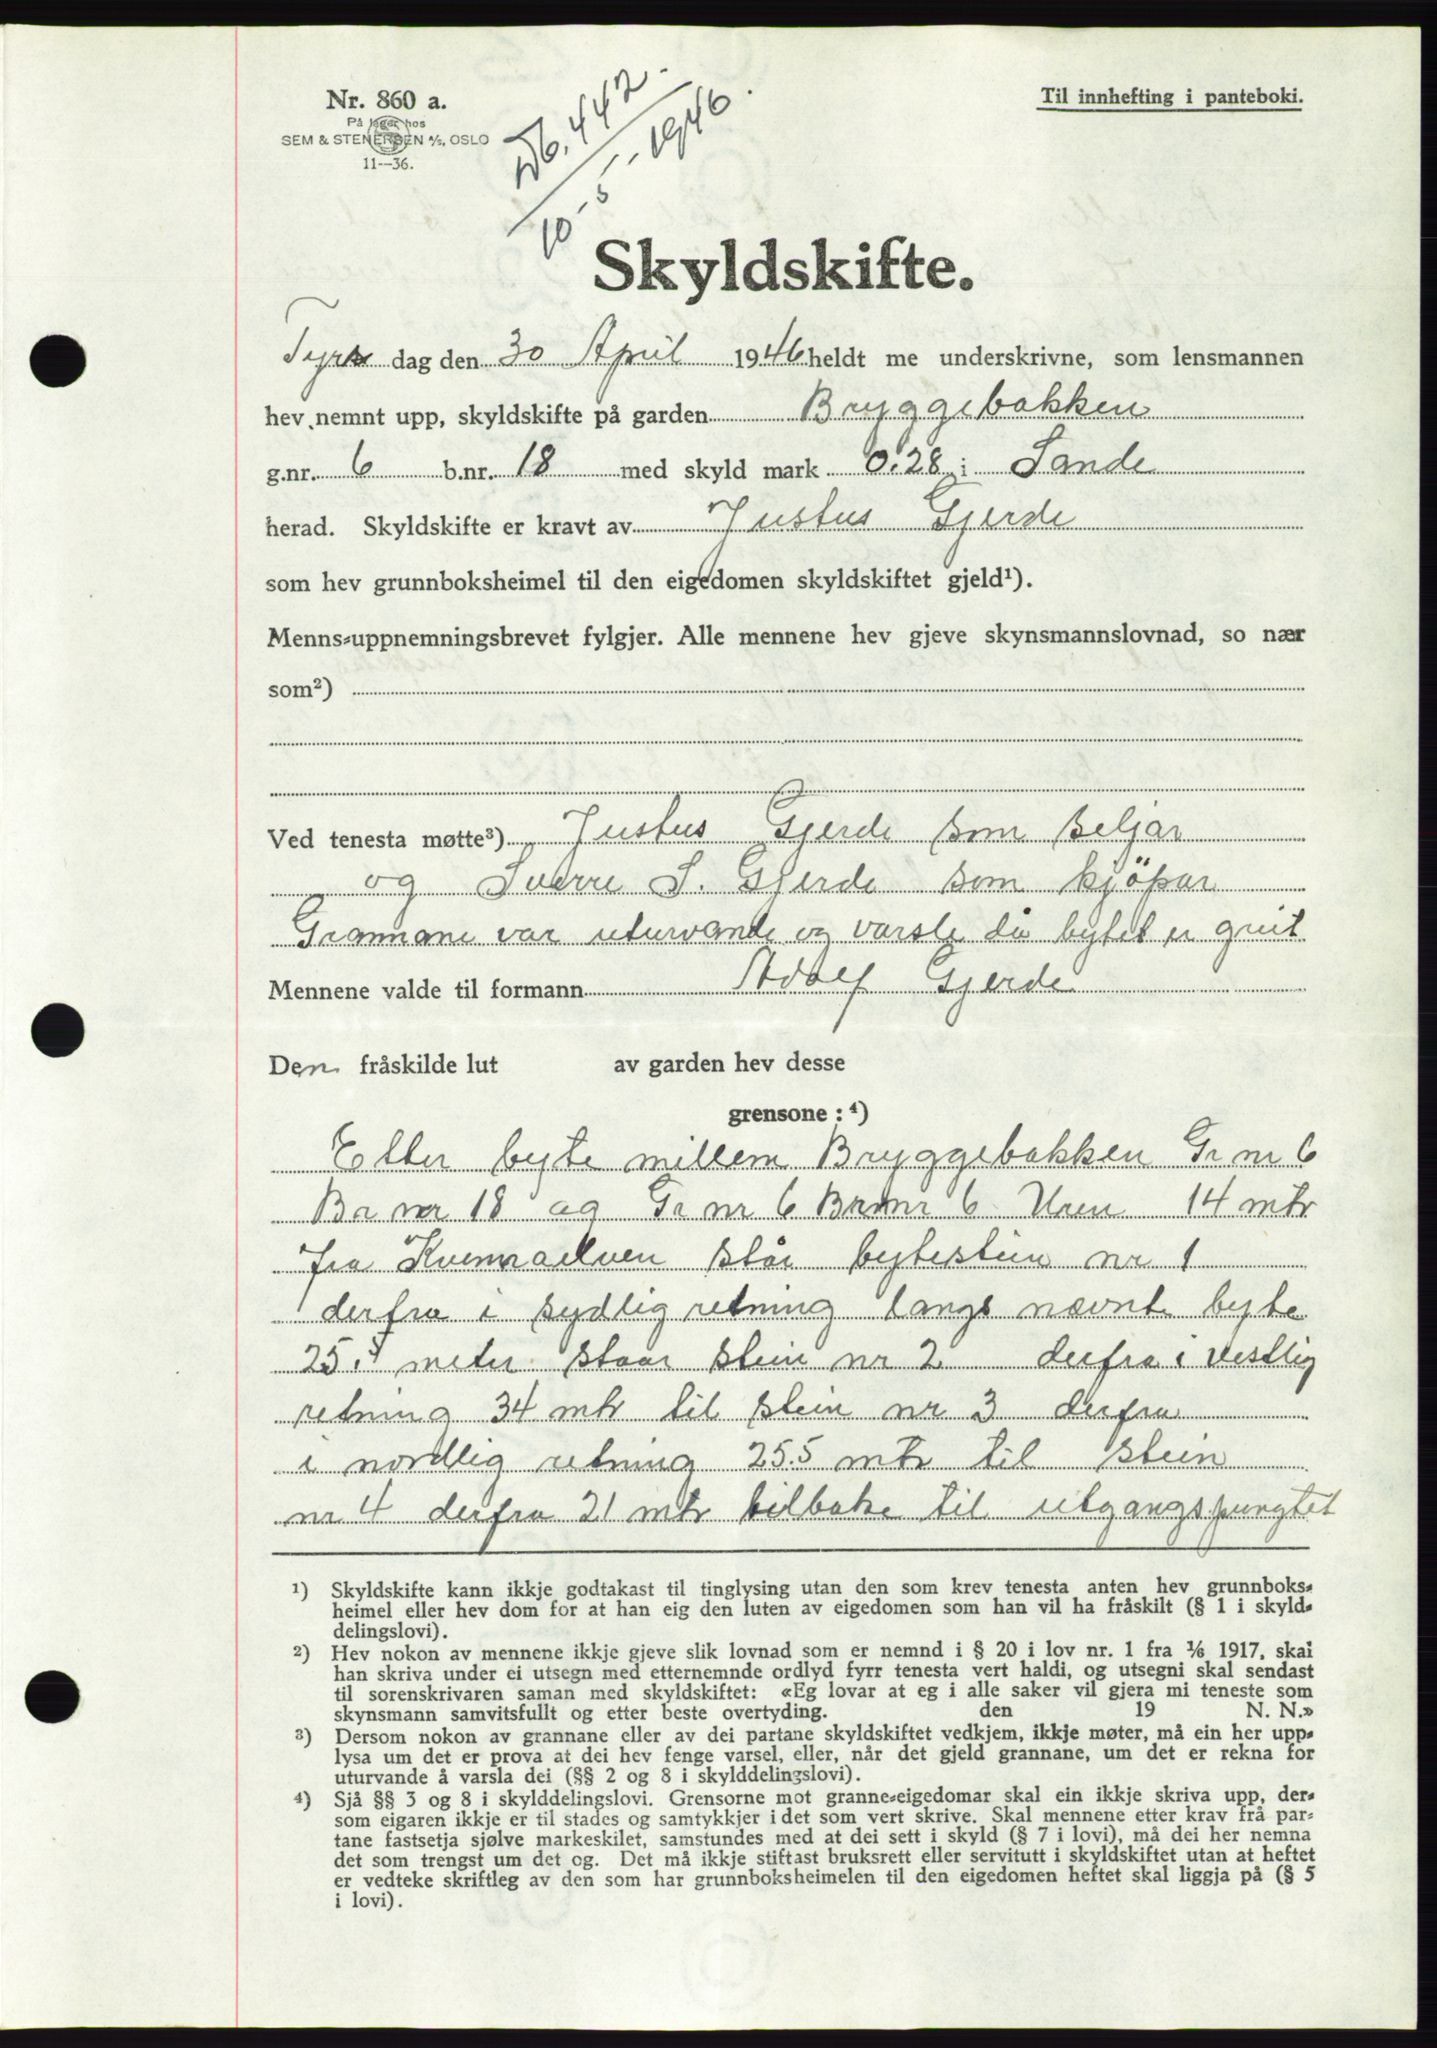 Nr. 860 a.
På lager hos
SEM & STENERSEN A/S, OSLO
11--36.
Til innhefting i panteboki.
Db. 442.
10-5-1946.
Skyldskifte.
Tyrs dag den 30 April 1946 heldt me underskrivne, som lensmannen
hev nemnt upp, skyldskifte på garden Bryggebakken
g.nr. 6 b.nr. 18 med skyld mark 0.28 i Sande
herad. Skyldskifte er kravt av Justus Gjerde
som hev grunnboksheimel til den eigedomen skyldskiftet gjeld¹).
Menns-uppnemningsbrevet fylgjer. Alle mennene hev gjeve skynsmannslovnad, so nær
som²)
Ved tenesta møtte³) Justus Gjerde som seljar
og Sverre S. Gjerde som kjöpar
Grannane var uturvande og varsle då bytet er greit
Mennene valde til formann Adolf Gjerde
Den fråskilde lut av garden hev desse
grensone : ⁴)
Etter byte millem Bryggebakken Gr nr 6
Br nr 18 og Gr nr 6 Br nr 6 Uren 14 mtr
fra Kvennaelven står bytestein nr 1
derfra i sydlig retning langs nævnte byte
25.5 meter staar stein nr 2 derfra i vestlig
retning 34 mtr til stein nr 3 derfra
i nordlig retning 25.5 mtr til stein
nr 4 derfra 21 mtr tilbake til utgangspungtet
¹) Skyldskifte kann ikkje godtakast til tinglysing utan den som krev tenesta anten hev grunnboks-
heimel eller hev dom for at han eig den luten av eigedomen som han vil ha fråskilt (§ 1 i skyld-
delingslovi).
²) Hev nokon av mennene ikkje gjeve slik lovnad som er nemnd i § 20 i lov nr. 1 fra 1/6 1917, skal
han skriva under ei utsegn med etternemnde ordlyd fyrr tenesta vert haldi, og utsegni skal sendast
til sorenskrivaren saman med skyldskiftet: «Eg lovar at eg i alle saker vil gjera mi teneste som
skynsmann samvitsfullt og etter beste overtyding. den 19 N. N.»
³) Dersom nokon av grannane eller av dei partane skyldskiftet vedkjem, ikkje møter, må ein her upp-
lysa um det er prova at dei hev fenge varsel, eller, når det gjeld grannane, um det er rekna for
uturvande å varsla dei (§§ 2 og 8 i skylddelingslovi).
⁴) Sjå §§ 3 og 8 i skylddelingslovi. Grensorne mot granne-eigedomar skal ein ikkje skriva upp, der-
som eigaren ikkje er til stades og samtykkjer i det som vert skrive. Skal mennene etter krav frå par-
tane fastsetja sjølve markeskilet, samstundes med at dei sett i skyld (§ 7 i lovi), må dei her nemna
det som trengst um det og. Det må ikkje stiftast bruksrett eller servitutt i skyldskiftet utan at heftet
er vedteke skriftleg av den som har grunnboksheimelen til den eigedomen heftet skal liggja på (§ 5
i lovi).